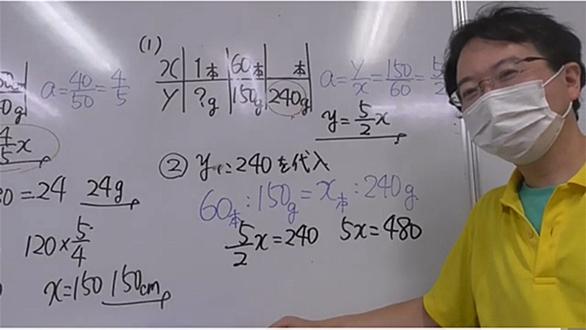 a=40/50=4/5
0g
4/5x
30=24 24g
120×5/4
x=150 150cm
(1)
x 1本 60本 本
y ?g 150g 240g
a=y/x=150/60=5/2
y=5/2x
② yに240を代入
60本:150g=x本:240g
5/2x=240 5x=480